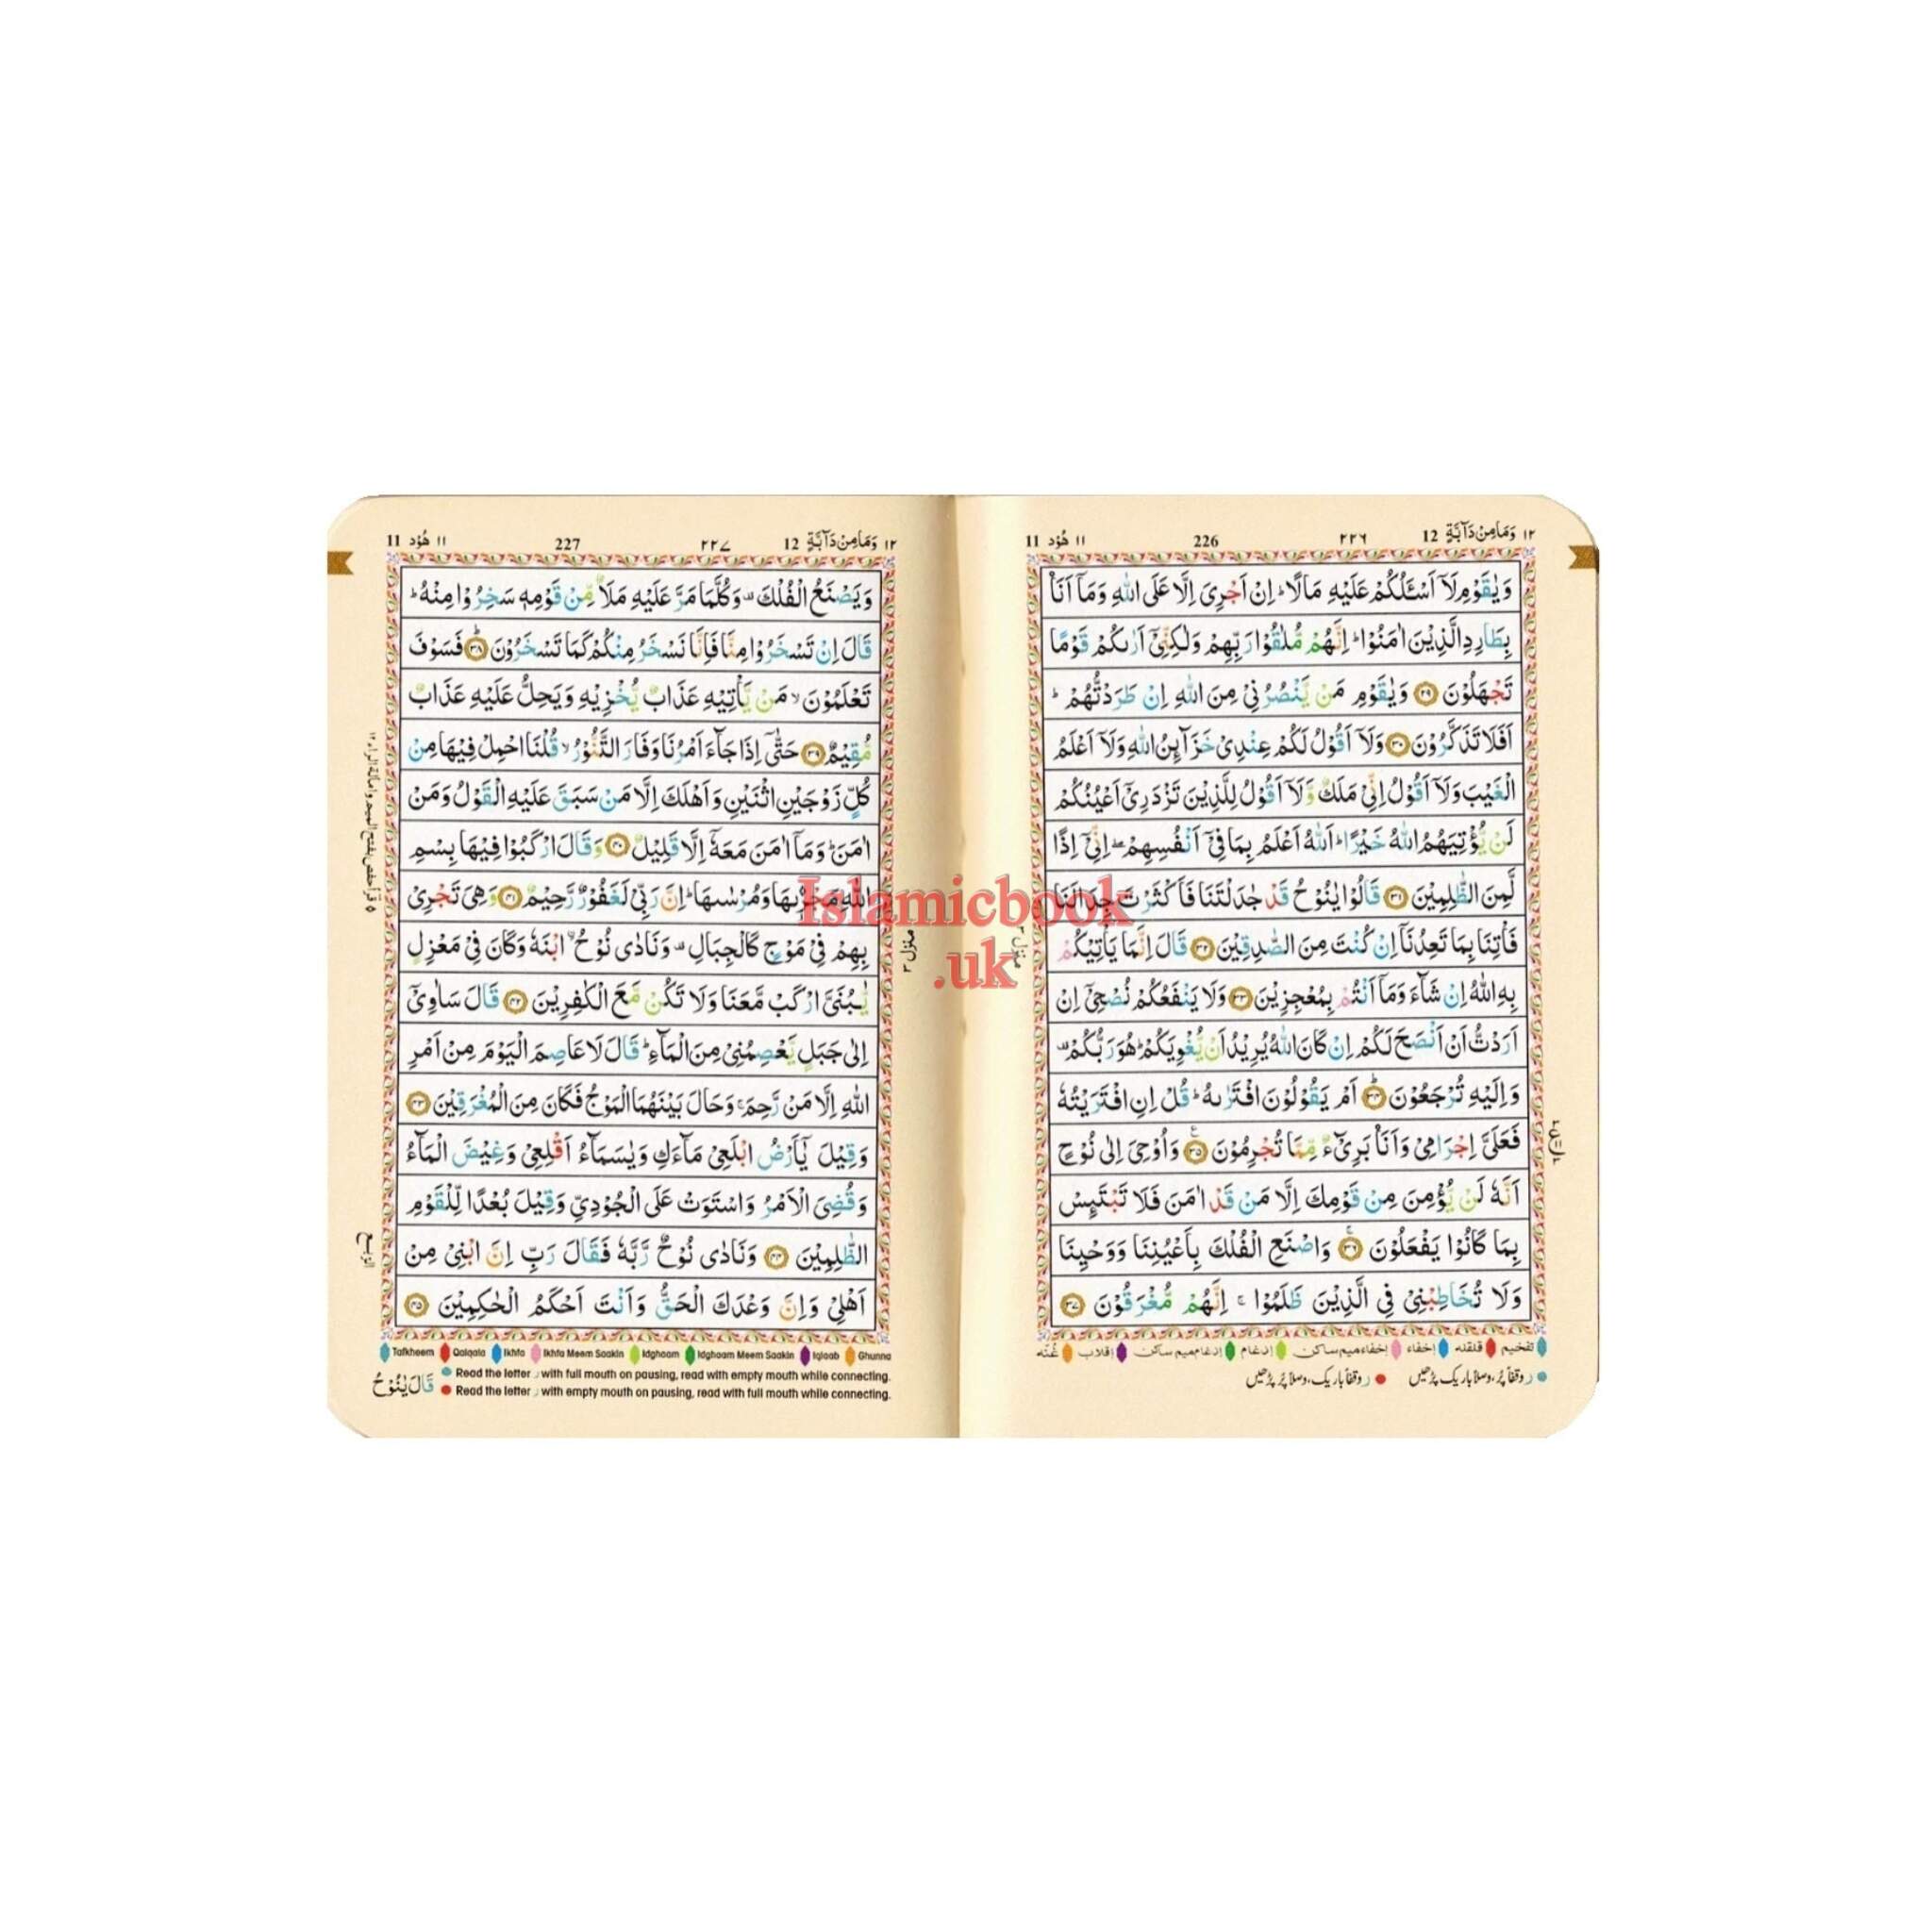 ١٢ وَمَا مِنْ دَآبَّةٍ 12
٢٢٦
226
١١ هُوْد 11
وَيٰقَوْمِ لَاۤ اَسْـَٔلُكُمْ عَلَيْهِ مَالًا ؕ اِنْ اَجْرِىَ اِلَّا عَلَى اللّٰهِ وَمَاۤ اَنَا۠
بِطَارِدِ الَّذِيْنَ اٰمَنُوْا ؕ اِنَّهُمْ مُّلٰقُوْا رَبِّهِمْ وَلٰكِنِّىْۤ اَرٰىكُمْ قَوْمًا
تَجْهَلُوْنَ ۝۲۹ وَيٰقَوْمِ مَنْ يَّنْصُرُنِىْ مِنَ اللّٰهِ اِنْ طَرَدْتُّهُمْ ؕ
اَفَلَا تَذَكَّرُوْنَ ۝۳۰ وَلَاۤ اَقُوْلُ لَكُمْ عِنْدِىْ خَزَآئِنُ اللّٰهِ وَلَاۤ اَعْلَمُ
الْغَيْبَ وَلَاۤ اَقُوْلُ اِنِّىْ مَلَكٌ وَّلَاۤ اَقُوْلُ لِلَّذِيْنَ تَزْدَرِىْۤ اَعْيُنُكُمْ
لَنْ يُّؤْتِيَهُمُ اللّٰهُ خَيْرًا ؕ اَللّٰهُ اَعْلَمُ بِمَا فِىْۤ اَنْفُسِهِمْ ۖ اِنِّىْۤ اِذًا
لَّمِنَ الظّٰلِمِيْنَ ۝۳۱ قَالُوْا يٰنُوْحُ قَدْ جٰدَلْتَنَا فَاَكْثَرْتَ جِدَالَنَا
فَاْتِنَا بِمَا تَعِدُنَاۤ اِنْ كُنْتَ مِنَ الصّٰدِقِيْنَ ۝۳۲ قَالَ اِنَّمَا يَاْتِيْكُمْ
بِهِ اللّٰهُ اِنْ شَآءَ وَمَاۤ اَنْتُمْ بِمُعْجِزِيْنَ ۝۳۳ وَلَا يَنْفَعُكُمْ نُصْحِىْۤ اِنْ
اَرَدْتُّ اَنْ اَنْصَحَ لَكُمْ اِنْ كَانَ اللّٰهُ يُرِيْدُ اَنْ يُّغْوِيَكُمْ ؕ هُوَ رَبُّكُمْ ۟
وَاِلَيْهِ تُرْجَعُوْنَ ۝۳۴ اَمْ يَقُوْلُوْنَ افْتَرٰىهُ ؕ قُلْ اِنِ افْتَرَيْتُهٗ
فَعَلَىَّ اِجْرَامِىْ وَاَنَا۠ بَرِىْٓءٌ مِّمَّا تُجْرِمُوْنَ ۝۳۵ وَاُوْحِىَ اِلٰى نُوْحٍ
اَنَّهٗ لَنْ يُّؤْمِنَ مِنْ قَوْمِكَ اِلَّا مَنْ قَدْ اٰمَنَ فَلَا تَبْتَئِسْ
بِمَا كَانُوْا يَفْعَلُوْنَ ۝۳۶ وَاصْنَعِ الْفُلْكَ بِاَعْيُنِنَا وَوَحْيِنَا
وَلَا تُخَاطِبْنِىْ فِى الَّذِيْنَ ظَلَمُوْا ۚ اِنَّهُمْ مُّغْرَقُوْنَ ۝۳۷
منزل ۳
تفخیم قلقلہ إخفاء إخفاءمیم ساکن إدغام إدغام میم ساکن إقلاب غُنّہ
ر وقفاً پُر، وصلاً باریک پڑھیں ر وقفاً باریک، وصلاً پُر پڑھیں
١٢ وَمَا مِنْ دَآبَّةٍ 12
٢٢٧
227
١١ هُوْد 11
وَيَصْنَعُ الْفُلْكَ ۟ وَكُلَّمَا مَرَّ عَلَيْهِ مَلَاٌ مِّنْ قَوْمِهٖ سَخِرُوْا مِنْهُ ؕ
قَالَ اِنْ تَسْخَرُوْا مِنَّا فَاِنَّا نَسْخَرُ مِنْكُمْ كَمَا تَسْخَرُوْنَ ۝۳۸ فَسَوْفَ
تَعْلَمُوْنَ ۙ مَنْ يَّاْتِيْهِ عَذَابٌ يُّخْزِيْهِ وَيَحِلُّ عَلَيْهِ عَذَابٌ
مُّقِيْمٌ ۝۳۹ حَتّٰٓى اِذَا جَآءَ اَمْرُنَا وَفَارَ التَّنُّوْرُ ۙ قُلْنَا احْمِلْ فِيْهَا مِنْ
كُلٍّ زَوْجَيْنِ اثْنَيْنِ وَاَهْلَكَ اِلَّا مَنْ سَبَقَ عَلَيْهِ الْقَوْلُ وَمَنْ
اٰمَنَ ؕ وَمَاۤ اٰمَنَ مَعَهٗۤ اِلَّا قَلِيْلٌ ۝۴۰ وَقَالَ ارْكَبُوْا فِيْهَا بِسْمِ
اللّٰهِ مَجْرٖىهَا وَمُرْسٰىهَا ؕ اِنَّ رَبِّىْ لَغَفُوْرٌ رَّحِيْمٌ ۝۴۱ وَهِىَ تَجْرِىْ
بِهِمْ فِىْ مَوْجٍ كَالْجِبَالِ ۟ وَنَادٰى نُوْحُ ۨابْنَهٗ وَكَانَ فِىْ مَعْزِلٍ
يّٰبُنَىَّ ارْكَبْ مَّعَنَا وَلَا تَكُنْ مَّعَ الْكٰفِرِيْنَ ۝۴۲ قَالَ سَاٰوِىْۤ
اِلٰى جَبَلٍ يَّعْصِمُنِىْ مِنَ الْمَآءِ ؕ قَالَ لَا عَاصِمَ الْيَوْمَ مِنْ اَمْرِ
اللّٰهِ اِلَّا مَنْ رَّحِمَ ۚ وَحَالَ بَيْنَهُمَا الْمَوْجُ فَكَانَ مِنَ الْمُغْرَقِيْنَ ۝۴۳
وَقِيْلَ يٰۤاَرْضُ ابْلَعِىْ مَآءَكِ وَيٰسَمَآءُ اَقْلِعِىْ وَغِيْضَ الْمَآءُ
وَقُضِىَ الْاَمْرُ وَاسْتَوَتْ عَلَى الْجُوْدِىِّ وَقِيْلَ بُعْدًا لِّلْقَوْمِ
الظّٰلِمِيْنَ ۝۴۴ وَنَادٰى نُوْحٌ رَّبَّهٗ فَقَالَ رَبِّ اِنَّ ابْنِىْ مِنْ
اَهْلِىْ وَاِنَّ وَعْدَكَ الْحَقُّ وَاَنْتَ اَحْكَمُ الْحٰكِمِيْنَ ۝۴۵
منزل ۳
Tafkheem Qalqala Ikhfa Ikhfa Meem Saakin Idghaam Idghaam Meem Saakin Iqlaab Ghunna
Read the letter ر with full mouth on pausing, read with empty mouth while connecting.
Read the letter ر with empty mouth on pausing, read with full mouth while connecting.
قَالَ يٰنُوْحُ
Islamicbook
.uk